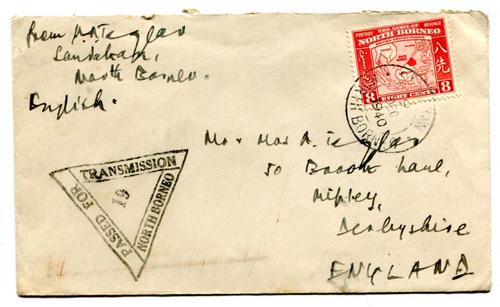 from
Sandakan,
North Borneo.
English.
POSTAGE THE STATE OF REVENUE
NORTH BORNEO
八先
8 EIGHT CENTS 8
1940
NORTH BORNEO
Mr & Mrs
50 Lane,
Ripley,
Derbyshire
ENGLAND
PASSED FOR TRANSMISSION
19
NORTH BORNEO